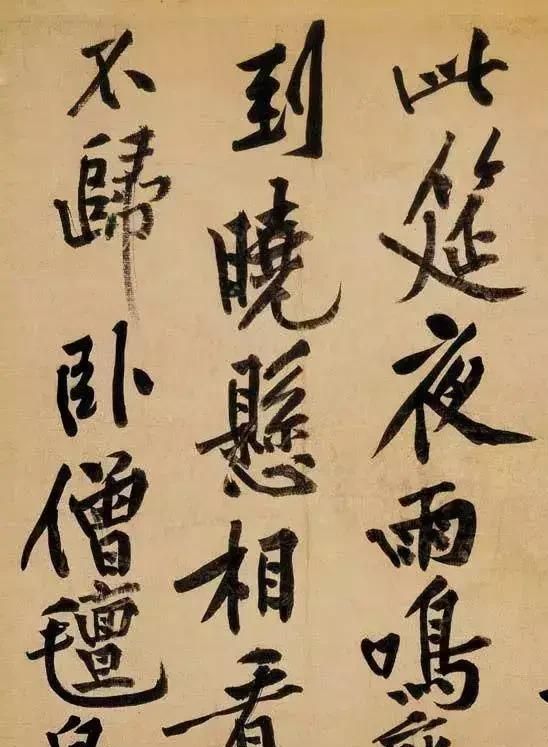 此筵夜雨鳴
到曉懸相看
不歸卧僧氈